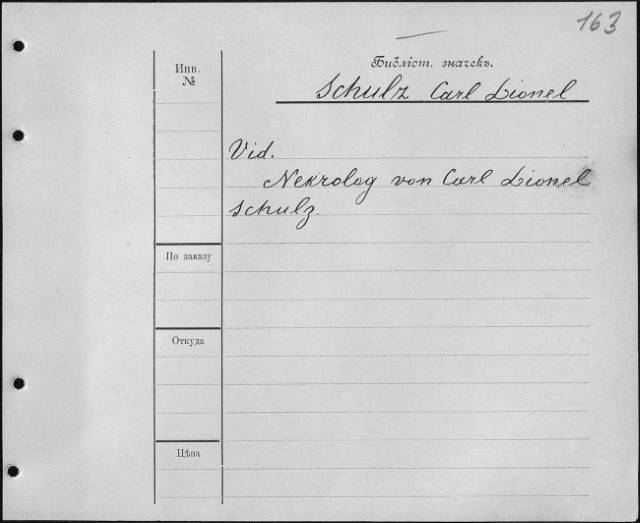 163
Библіот. значекъ.
Schulz Carl Lionel
Инв.
№
Vid.
Nekrolog von Carl Lionel
Schulz.
По заказу
Откуда
Цѣна